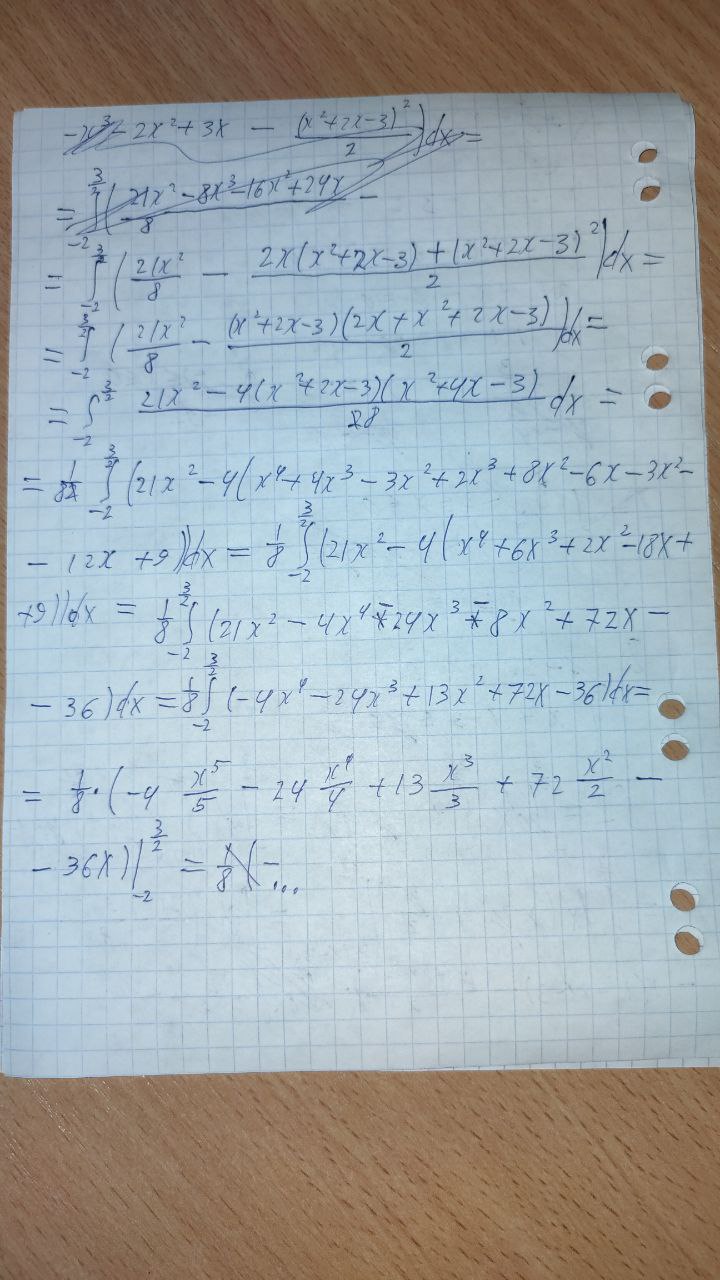 -x³ - 2x² + 3x - (x²+2x-3)²/2)dx =
= ∫_{-2}^{3/2} (21x² - 8x³ - 16x² + 24x / 8 -
= ∫_{-2}^{3/2} (21x²/8 - (2x(x²+2x-3) + (x²+2x-3)²)/2)dx =
= ∫_{-2}^{3/2} (21x²/8 - (x²+2x-3)(2x+x²+2x-3)/2)dx =
= ∫_{-2}^{3/2} (21x² - 4(x²+2x-3)(x²+4x-3))/8 dx =
= 1/8 ∫_{-2}^{3/2} (21x² - 4(x⁴+4x³-3x²+2x³+8x²-6x-3x²-
- 12x +9))dx = 1/8 ∫_{-2}^{3/2} (21x² - 4(x⁴+6x³+2x²-18x+
+9))dx = 1/8 ∫_{-2}^{3/2} (21x² - 4x⁴ - 24x³ - 8x² + 72x -
- 36)dx = 1/8 ∫_{-2}^{3/2} (-4x⁴ - 24x³ + 13x² + 72x - 36)dx =
= 1/8 · (-4 x⁵/5 - 24 x⁴/4 + 13 x³/3 + 72 x²/2 -
- 36x)|_{-2}^{3/2} = 1/8 (- ...